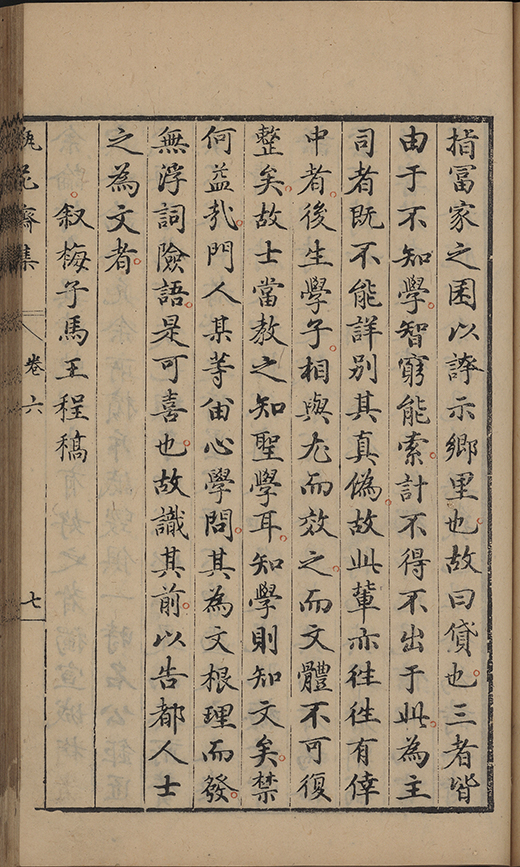 指冨家之囷以誇示鄉里也故曰貸也三者皆
由于不知學智窮能索計不得不出于此為主
司者既不能詳别其真僞故此輩亦徃徃有倖
中者後生學子相與尤而效之而文體不可復
整矣故士當教之知聖學耳知學則知文矣禁
何益哉門人某等留心學問其為文根理而發
無浮詞險語是可喜也故識其前以告都人士
之為文者
叙梅子馬王程稿
瓶花齋集 卷六 七